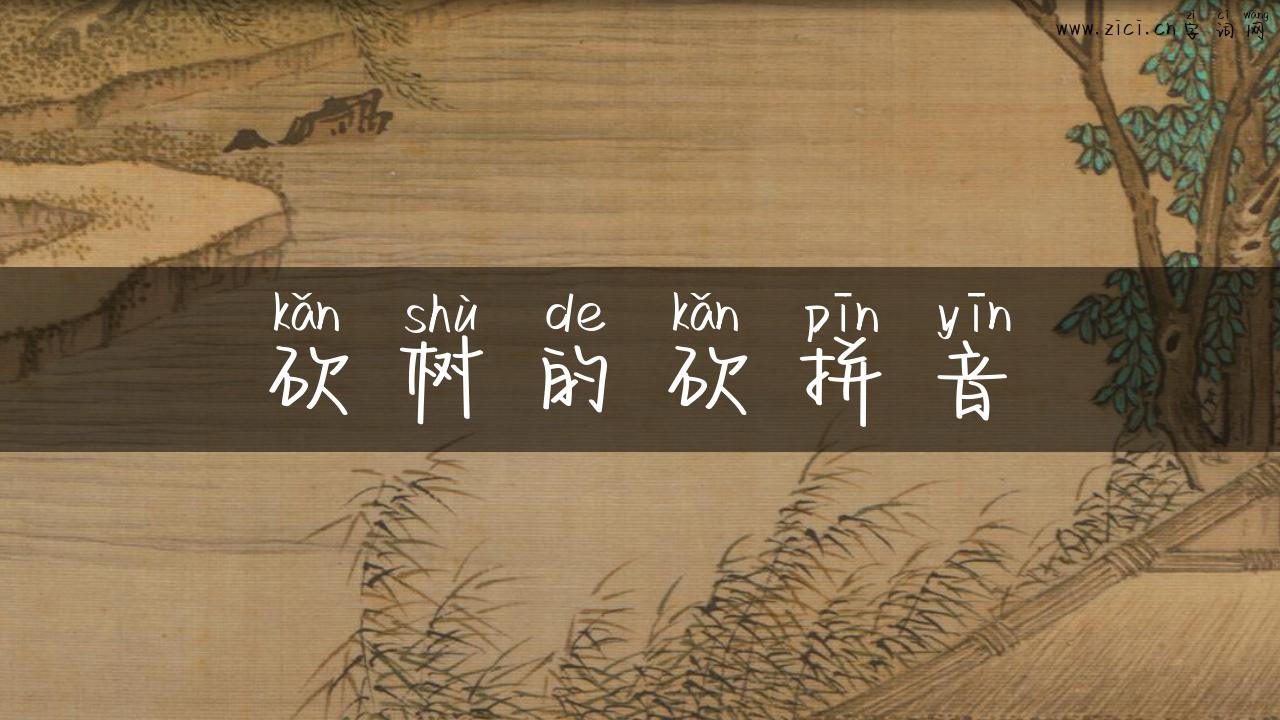 zì cí wǎng
www.zici.cn 字词网
kǎn shù de kǎn pīn yīn
砍树的砍拼音